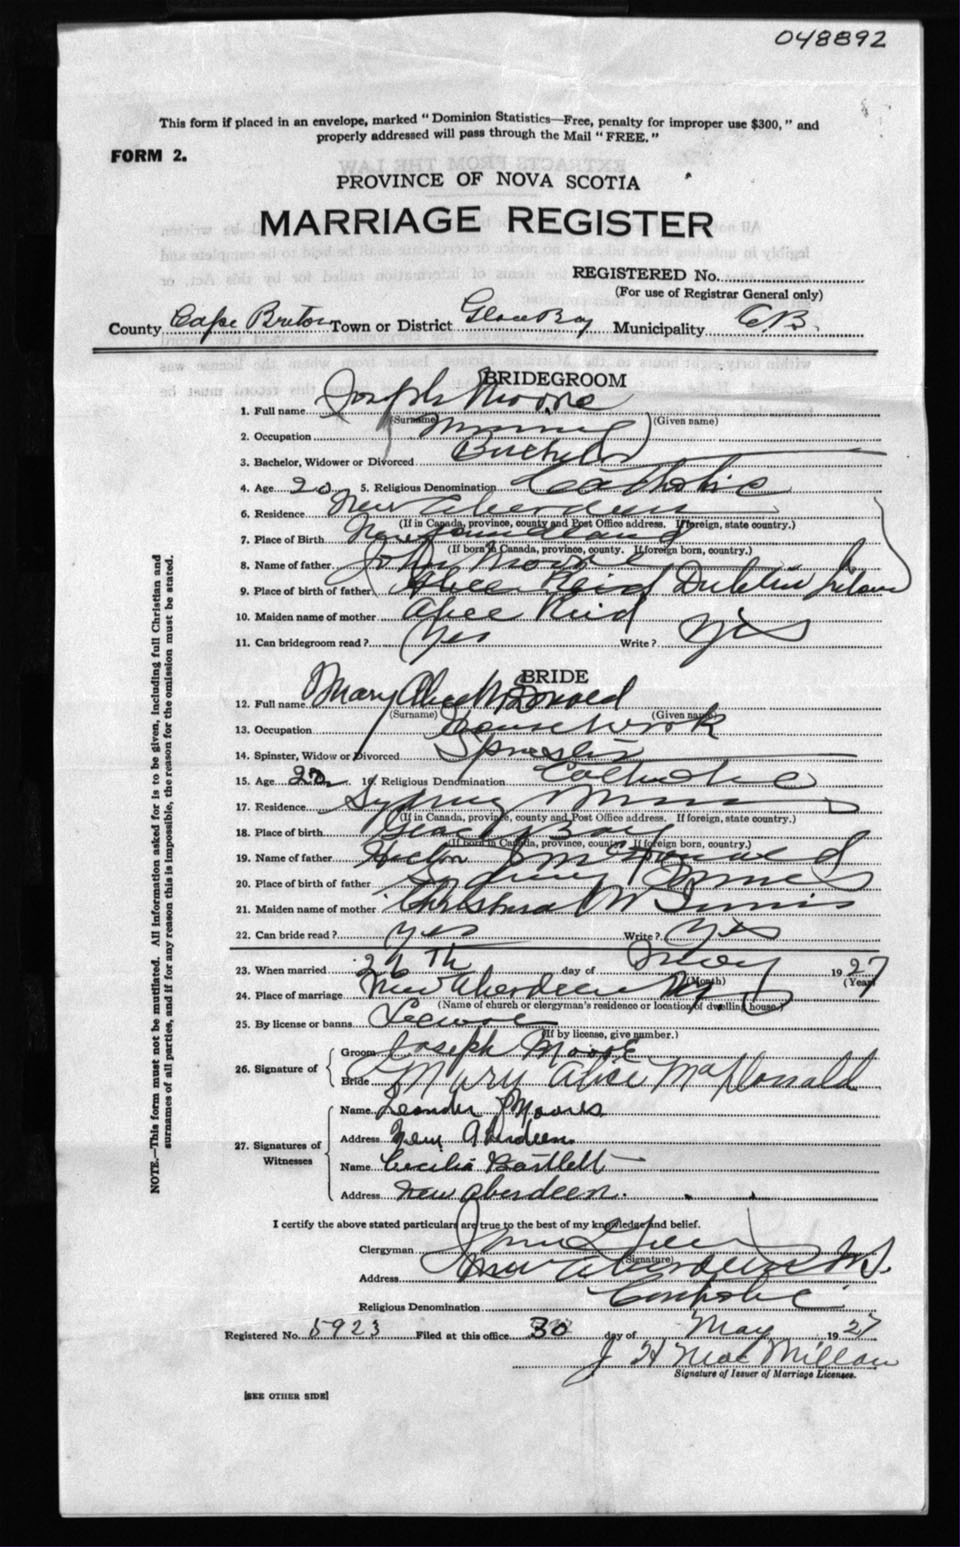 048892
This form if placed in an envelope, marked "Dominion Statistics—Free, penalty for improper use $300," and
properly addressed will pass through the Mail "FREE."
FORM 2.
PROVINCE OF NOVA SCOTIA
MARRIAGE REGISTER
REGISTERED No.
(For use of Registrar General only)
County Cape Breton Town or District Glace Bay Municipality C.B.
BRIDEGROOM
1. Full name Joseph Moore
(Surname) (Given name)
2. Occupation
3. Bachelor, Widower or Divorced Bachelor
4. Age 20 5. Religious Denomination Catholic
6. Residence New Aberdeen
(If in Canada, province, county and Post Office address. If foreign, state country.)
7. Place of Birth Newfoundland
(If born in Canada, province, county. If foreign born, country.)
8. Name of father John Moore
9. Place of birth of father Alice Reid Dublin Ireland
10. Maiden name of mother Alice Reid
11. Can bridegroom read? Yes Write? Yes
BRIDE
12. Full name Mary Alice McDonald
(Surname) (Given name)
13. Occupation House Work
14. Spinster, Widow or Divorced Spinster
15. Age 22 16. Religious Denomination Catholic
17. Residence Sydney Mines
(If in Canada, province, county and Post Office address. If foreign, state country.)
18. Place of birth Glace Bay
(If born in Canada, province, county. If foreign born, country.)
19. Name of father Hector McDonald
20. Place of birth of father Sydney Mines
21. Maiden name of mother Christina McInnis
22. Can bride read? yes Write? Yes
23. When married 26th day of May 1927
(Month) (Year)
24. Place of marriage New Aberdeen
(Name of church or clergyman's residence or location of dwelling house.)
25. By license or banns License
(If by license, give number.)
26. Signature of
Groom Joseph Moore
Bride Mary Alice MacDonald
27. Signatures of Witnesses
Name Leander J Moores
Address New Aberdeen
Name Cecilia Bartlett
Address New Aberdeen.
I certify the above stated particulars are true to the best of my knowledge and belief.
Clergyman
(Signature)
Address New Aberdeen N.S.
Religious Denomination Catholic
Registered No. 5923 Filed at this office 30 day of May 1927
J H MacMillan
Signature of Issuer of Marriage Licenses.
[SEE OTHER SIDE]
NOTE.—This form must not be mutilated. All information asked for is to be given, including full Christian and
surnames of all parties, and if for any reason this is impossible, the reason for the omission must be stated.